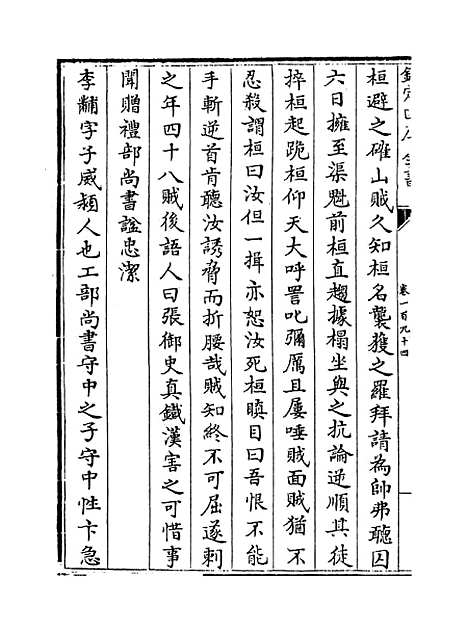 欽定四庫全書
卷一百九十四
桓避之碓山賊久知桓名襲獲之羅拜請為帥弗聽囚
六日擁至渠魁前桓直趨據榻坐與之抗論逆順其徒
捽桓起跪桓仰天大呼詈叱彌厲且屢唾賊面賊猶不
忍殺謂桓曰汝但一揖亦恕汝死桓瞋目曰吾恨不能
手斬逆首肯聽汝誘脅而折腰哉賊知終不可屈遂刺
之年四十八賊後語人曰張御史真鐵漢害之可惜事
聞贈禮部尚書諡忠潔
李黼字子威潁人也工部尚書守中之子守中性卞急